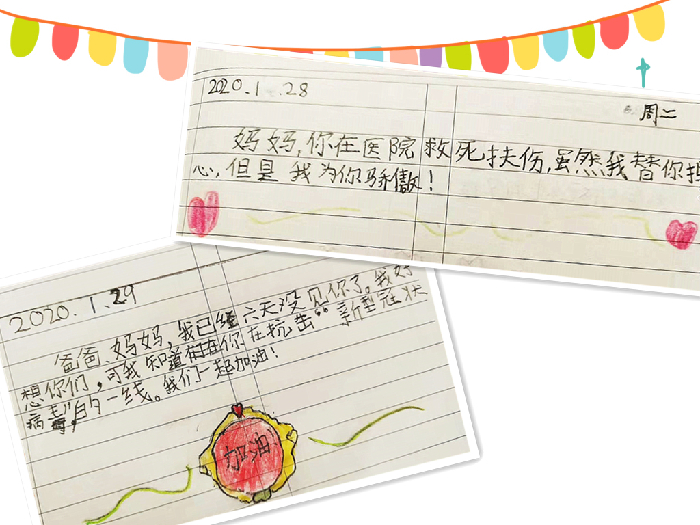 2020.1.28
周二
妈妈,你在医院救死扶伤,虽然我替你担
心,但是我为你骄傲!
2020.1.29
爸爸、妈妈,我已经六天没见你了。我好
想你们,可我知道你在抗击“新型冠状
病毒”的一线。我们一起加油!
加油